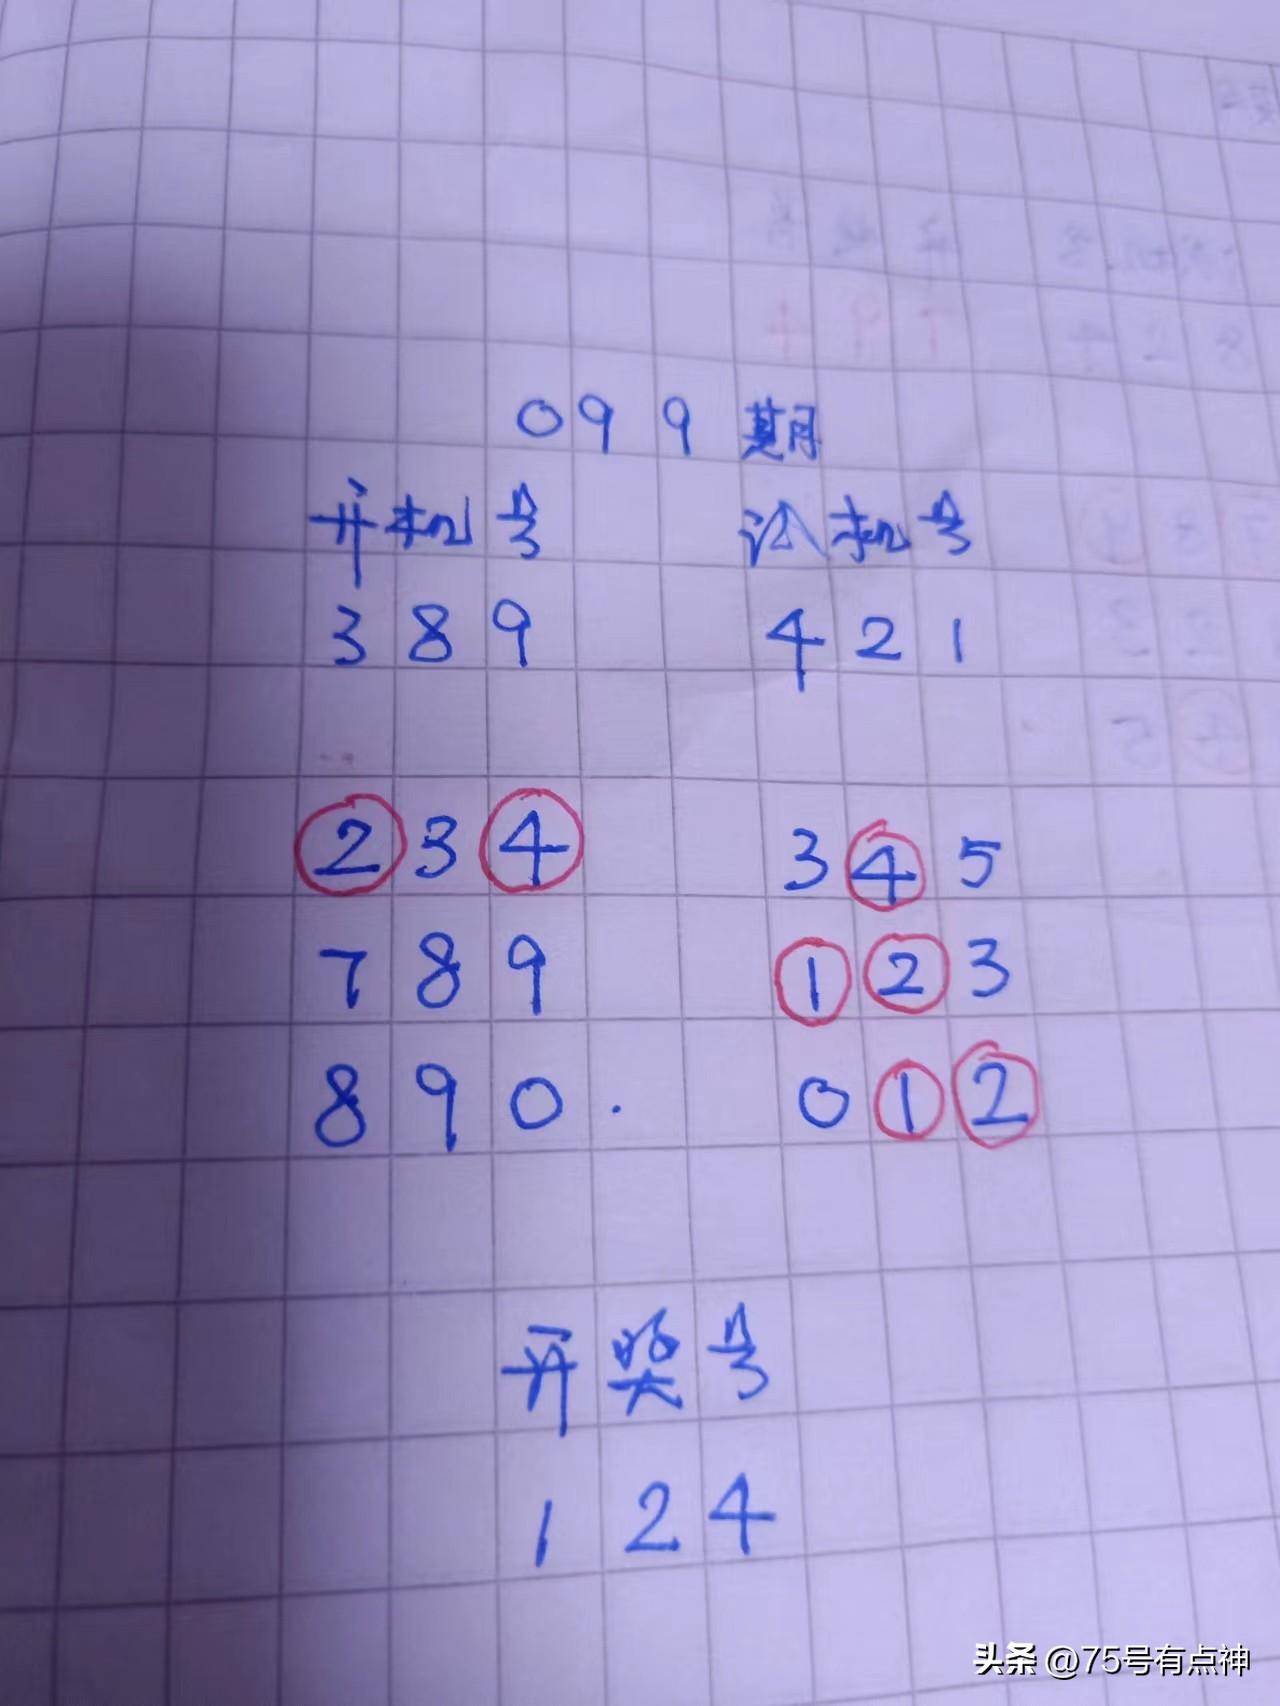 099期
开机号 试机号
3 8 9 4 2 1
2 3 4 3 4 5
7 8 9 1 2 3
8 9 0 . 0 1 2
开奖号
1 2 4
头条 @75号有点神